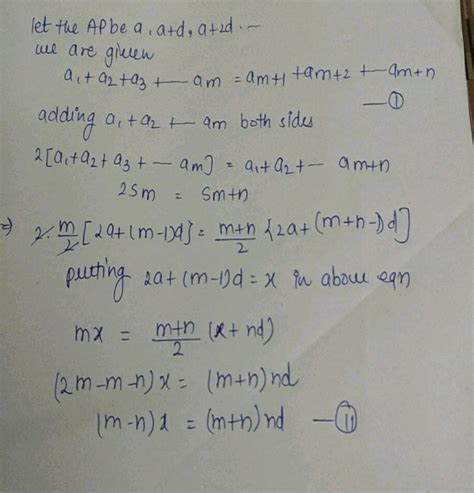 let the AP be a, a+d, a+2d . --
we are given
a₁ + a₂ + a₃ + — aₘ = aₘ₊₁ + aₘ₊₂ + — aₘ₊ₙ
— ①
adding a₁ + a₂ + — aₘ both sides
2[a₁+a₂+a₃+ -- aₘ] = a₁+a₂+ -- aₘ₊ₙ
2Sₘ = Sₘ₊ₙ
⇒ 2·m/2 [2a+(m-1)d] = (m+n)/2 {2a+(m+n-1)d]
putting 2a+(m-1)d = x in above eqn
mx = (m+n)/2 (x+nd)
(2m-m-n)x = (m+n)nd
(m-n)x = (m+n)nd — ⑪